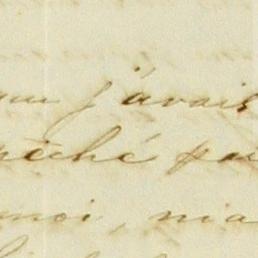 que j'avais
péché par
moi, ma